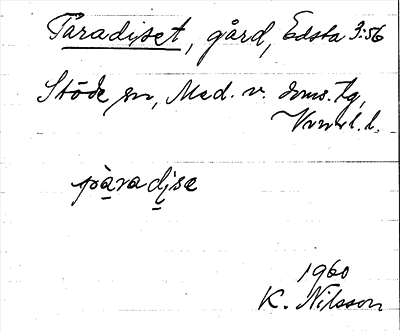 Paradiset, gård, Edsta 3:56
Stöde sn, Med. v. doms. tg,
Vnorrl. l.
pàradise
1960
K. Nilsson